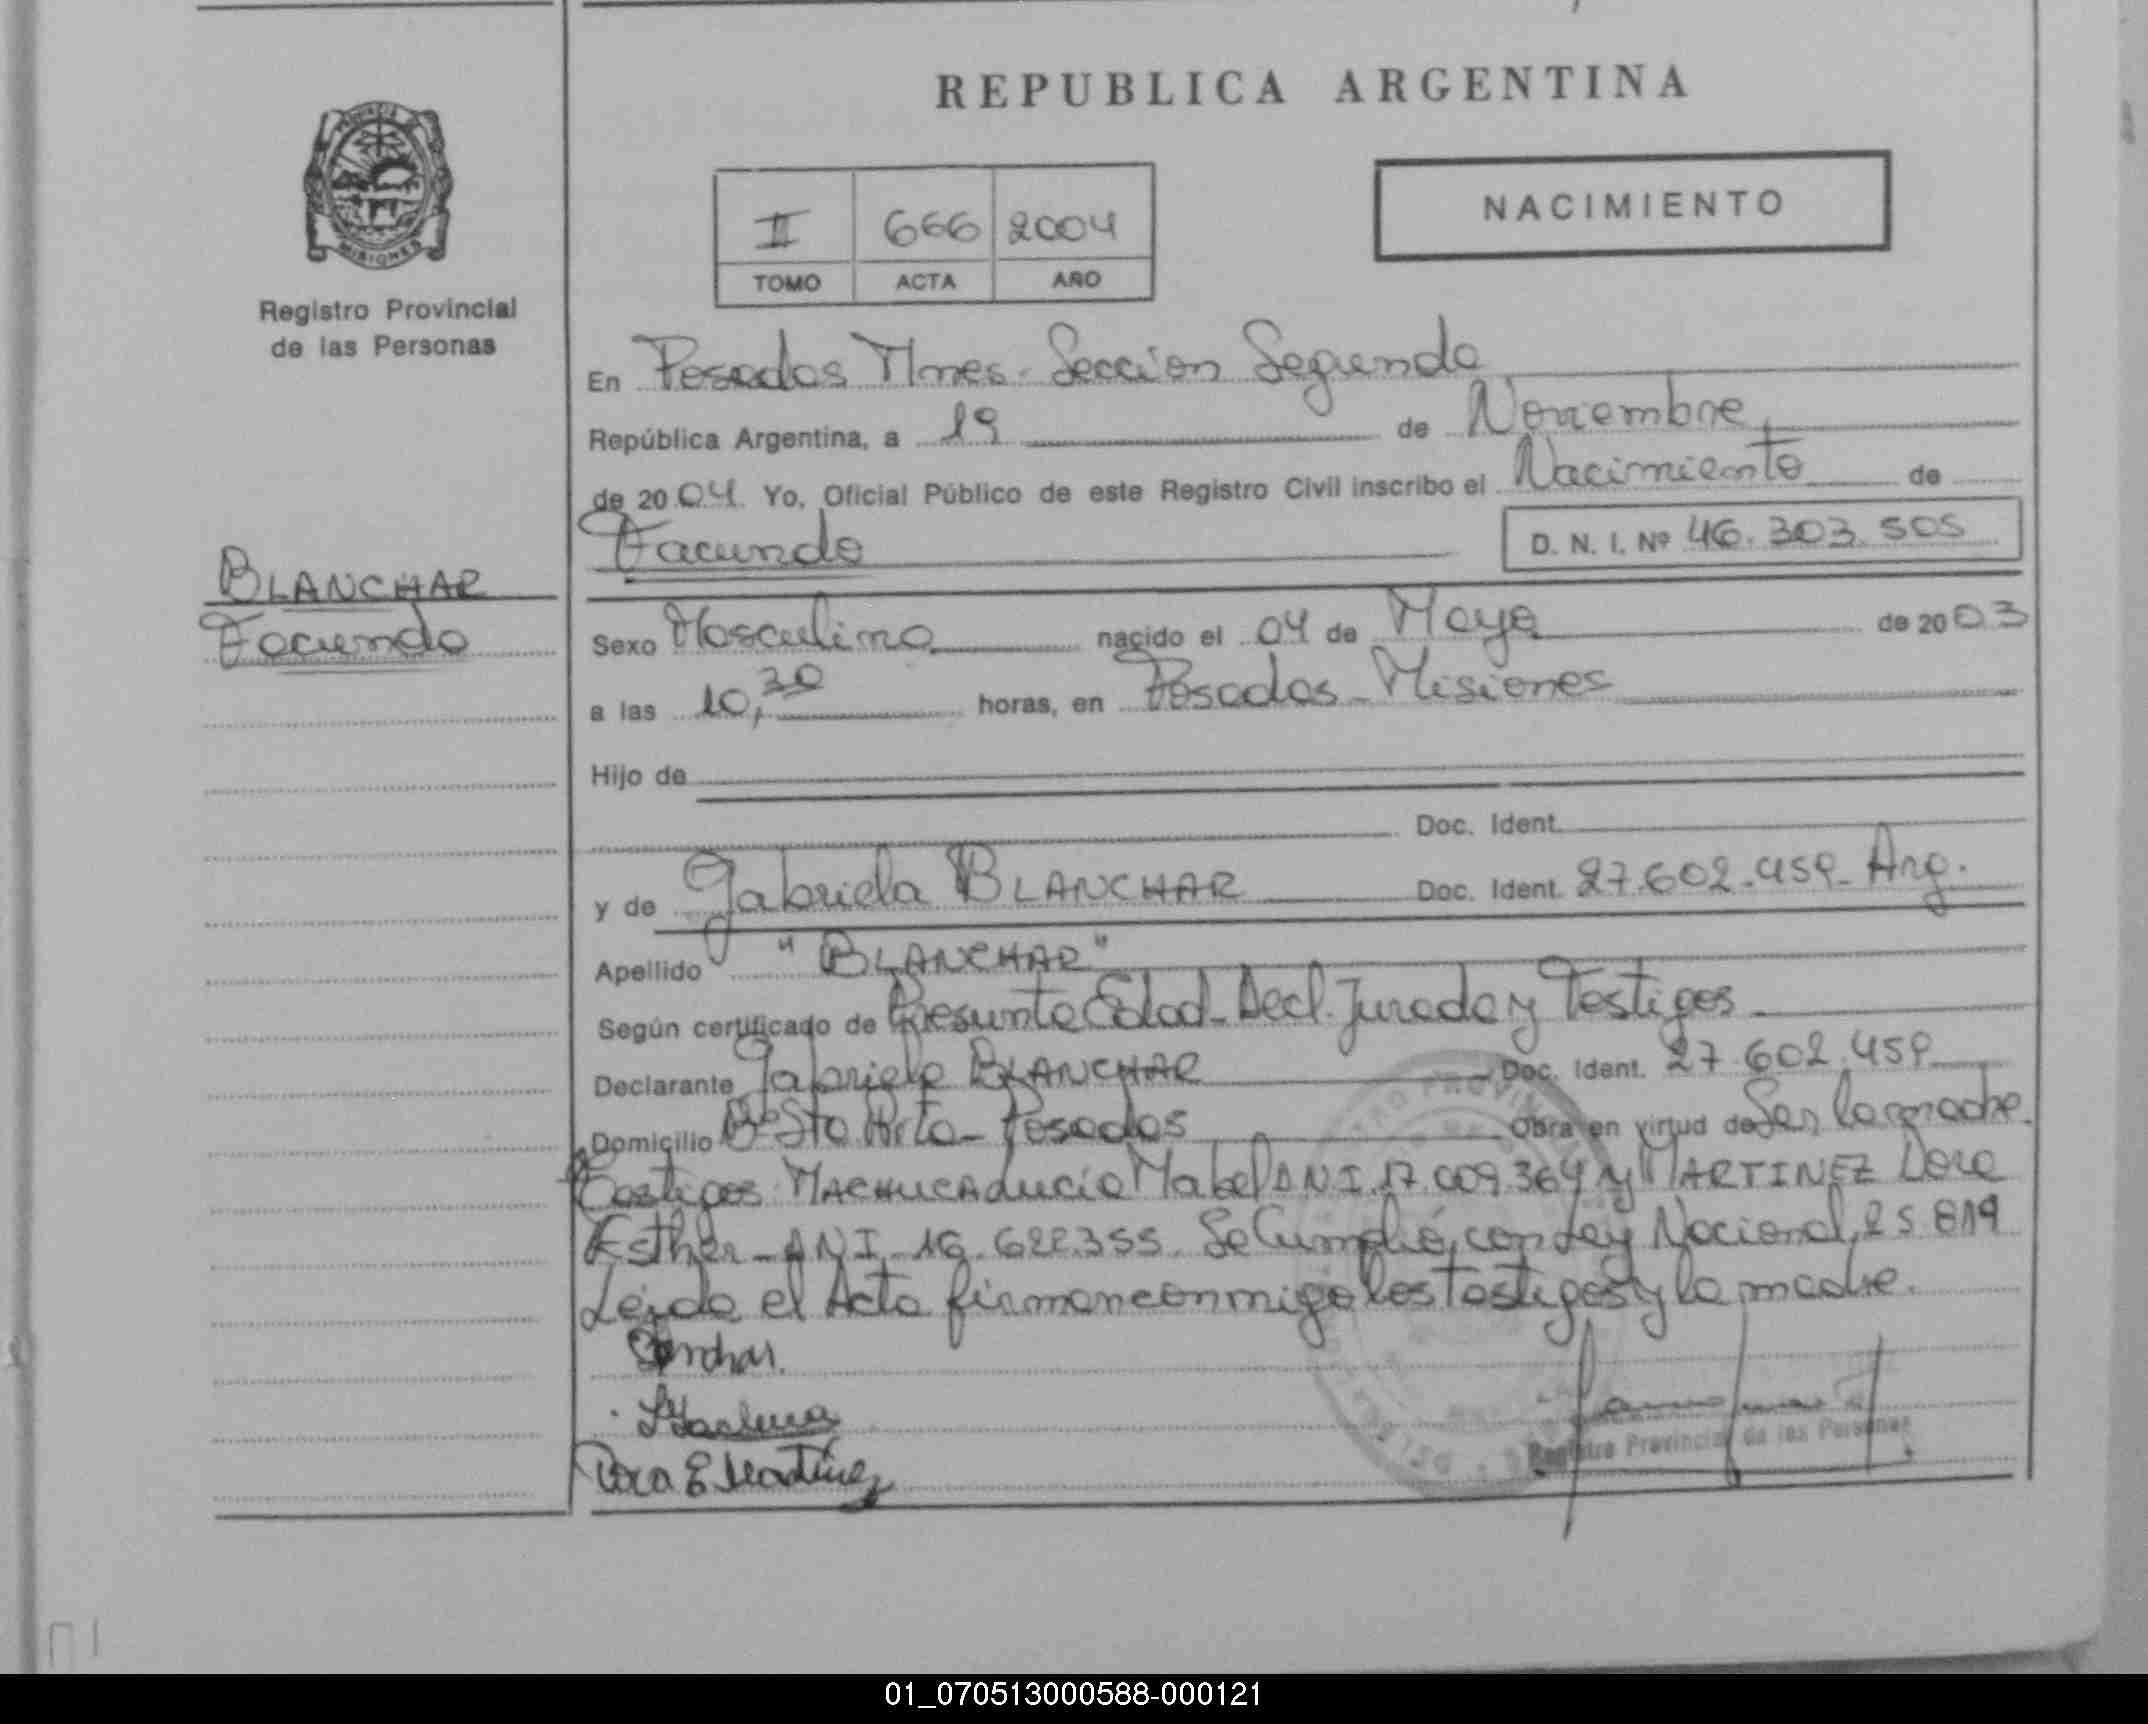 REPUBLICA ARGENTINA
NACIMIENTO
II 666 2004
TOMO ACTA AÑO
MISIONES
Registro Provincial
de las Personas
En Posadas Mnes. Sección Segunda
República Argentina, a 19 de Noviembre
de 2004. Yo, Oficial Público de este Registro Civil inscribo el Nacimiento de
Facundo D. N. I. Nº 46.303.505
BLANCHAR
Facundo
Sexo Masculino nacido el 04 de Mayo de 2003
a las 10,30 horas, en Posadas - Misiones
Hijo de
Doc. Ident.
y de Gabriela BLANCHAR Doc. Ident. 27.602.459 - Arg.
Apellido "BLANCHAR"
Según certificado de Presunta Edad - Decl. Jurada y Testigos
Declarante Gabriela BLANCHAR Doc. Ident. 27.602.459
Domicilio Bº Sta Rita - Posadas Obra en virtud de Ser la madre.
Testigos MACHUCA Lucia Mabel DNI. 17.009.364 y MARTINEZ Dora
Esther - DNI. 16.622.355. Se Cumplió con Ley Nacional 25.819
Leida el Acta firman conmigo los Testigos y la madre.
Blanchar.
Machuca
Dora E Martínez
Registro Provincial de las Personas
01_070513000588-000121